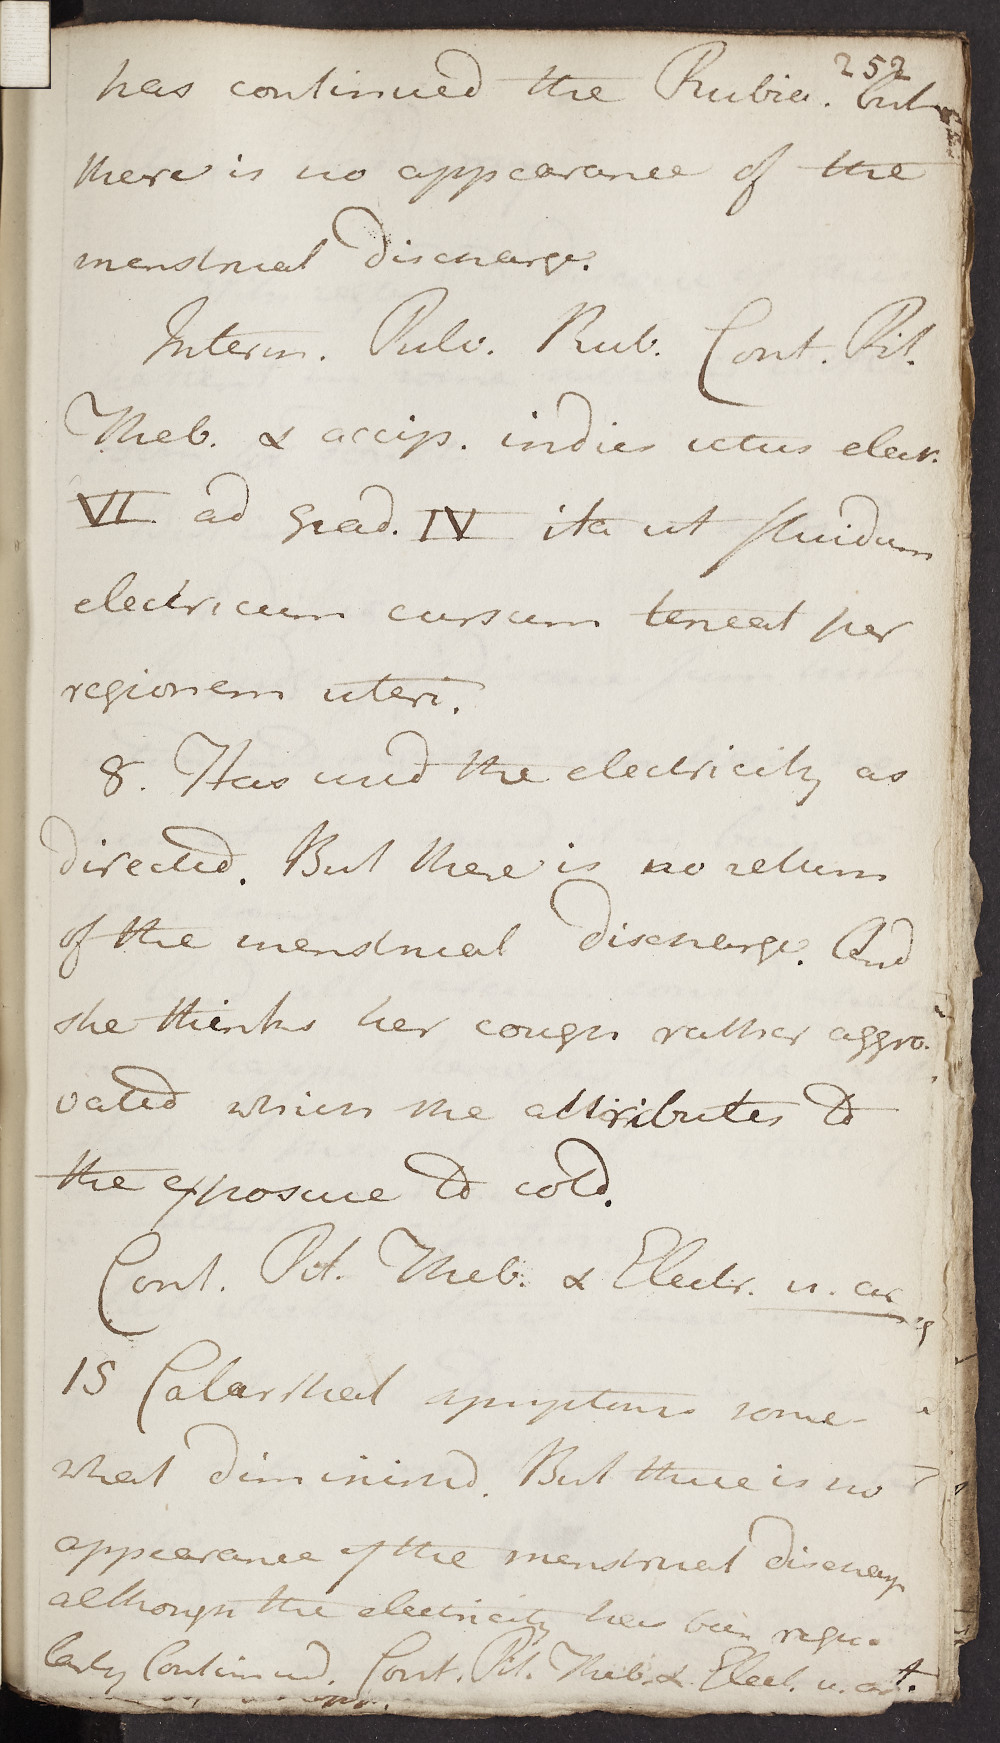 252
has continued the Rubia. but
there is no appearance of the
menstrual discharge.
Interm. Pulv. Rub. Cont. Pil.
Theb. & accip. indies ictus elect.
VI. ad grad. IV ita ut fluidum
electricum cursum teneat per
regionem uteri.
8. Has used the electricity as
directed. But there is no return
of the menstrual discharge. And
she thinks her cough rather aggra-
vated which she attributes to
the exposure to cold.
Cont. Pil. Theb. & Electr. u. a
15 Catarrhal symptoms some-
what diminished. But there is no
appearance of the menstrual discharge
although the electricity has been regu-
larly Continued. Cont. Pil. Theb. & Elect. u. a